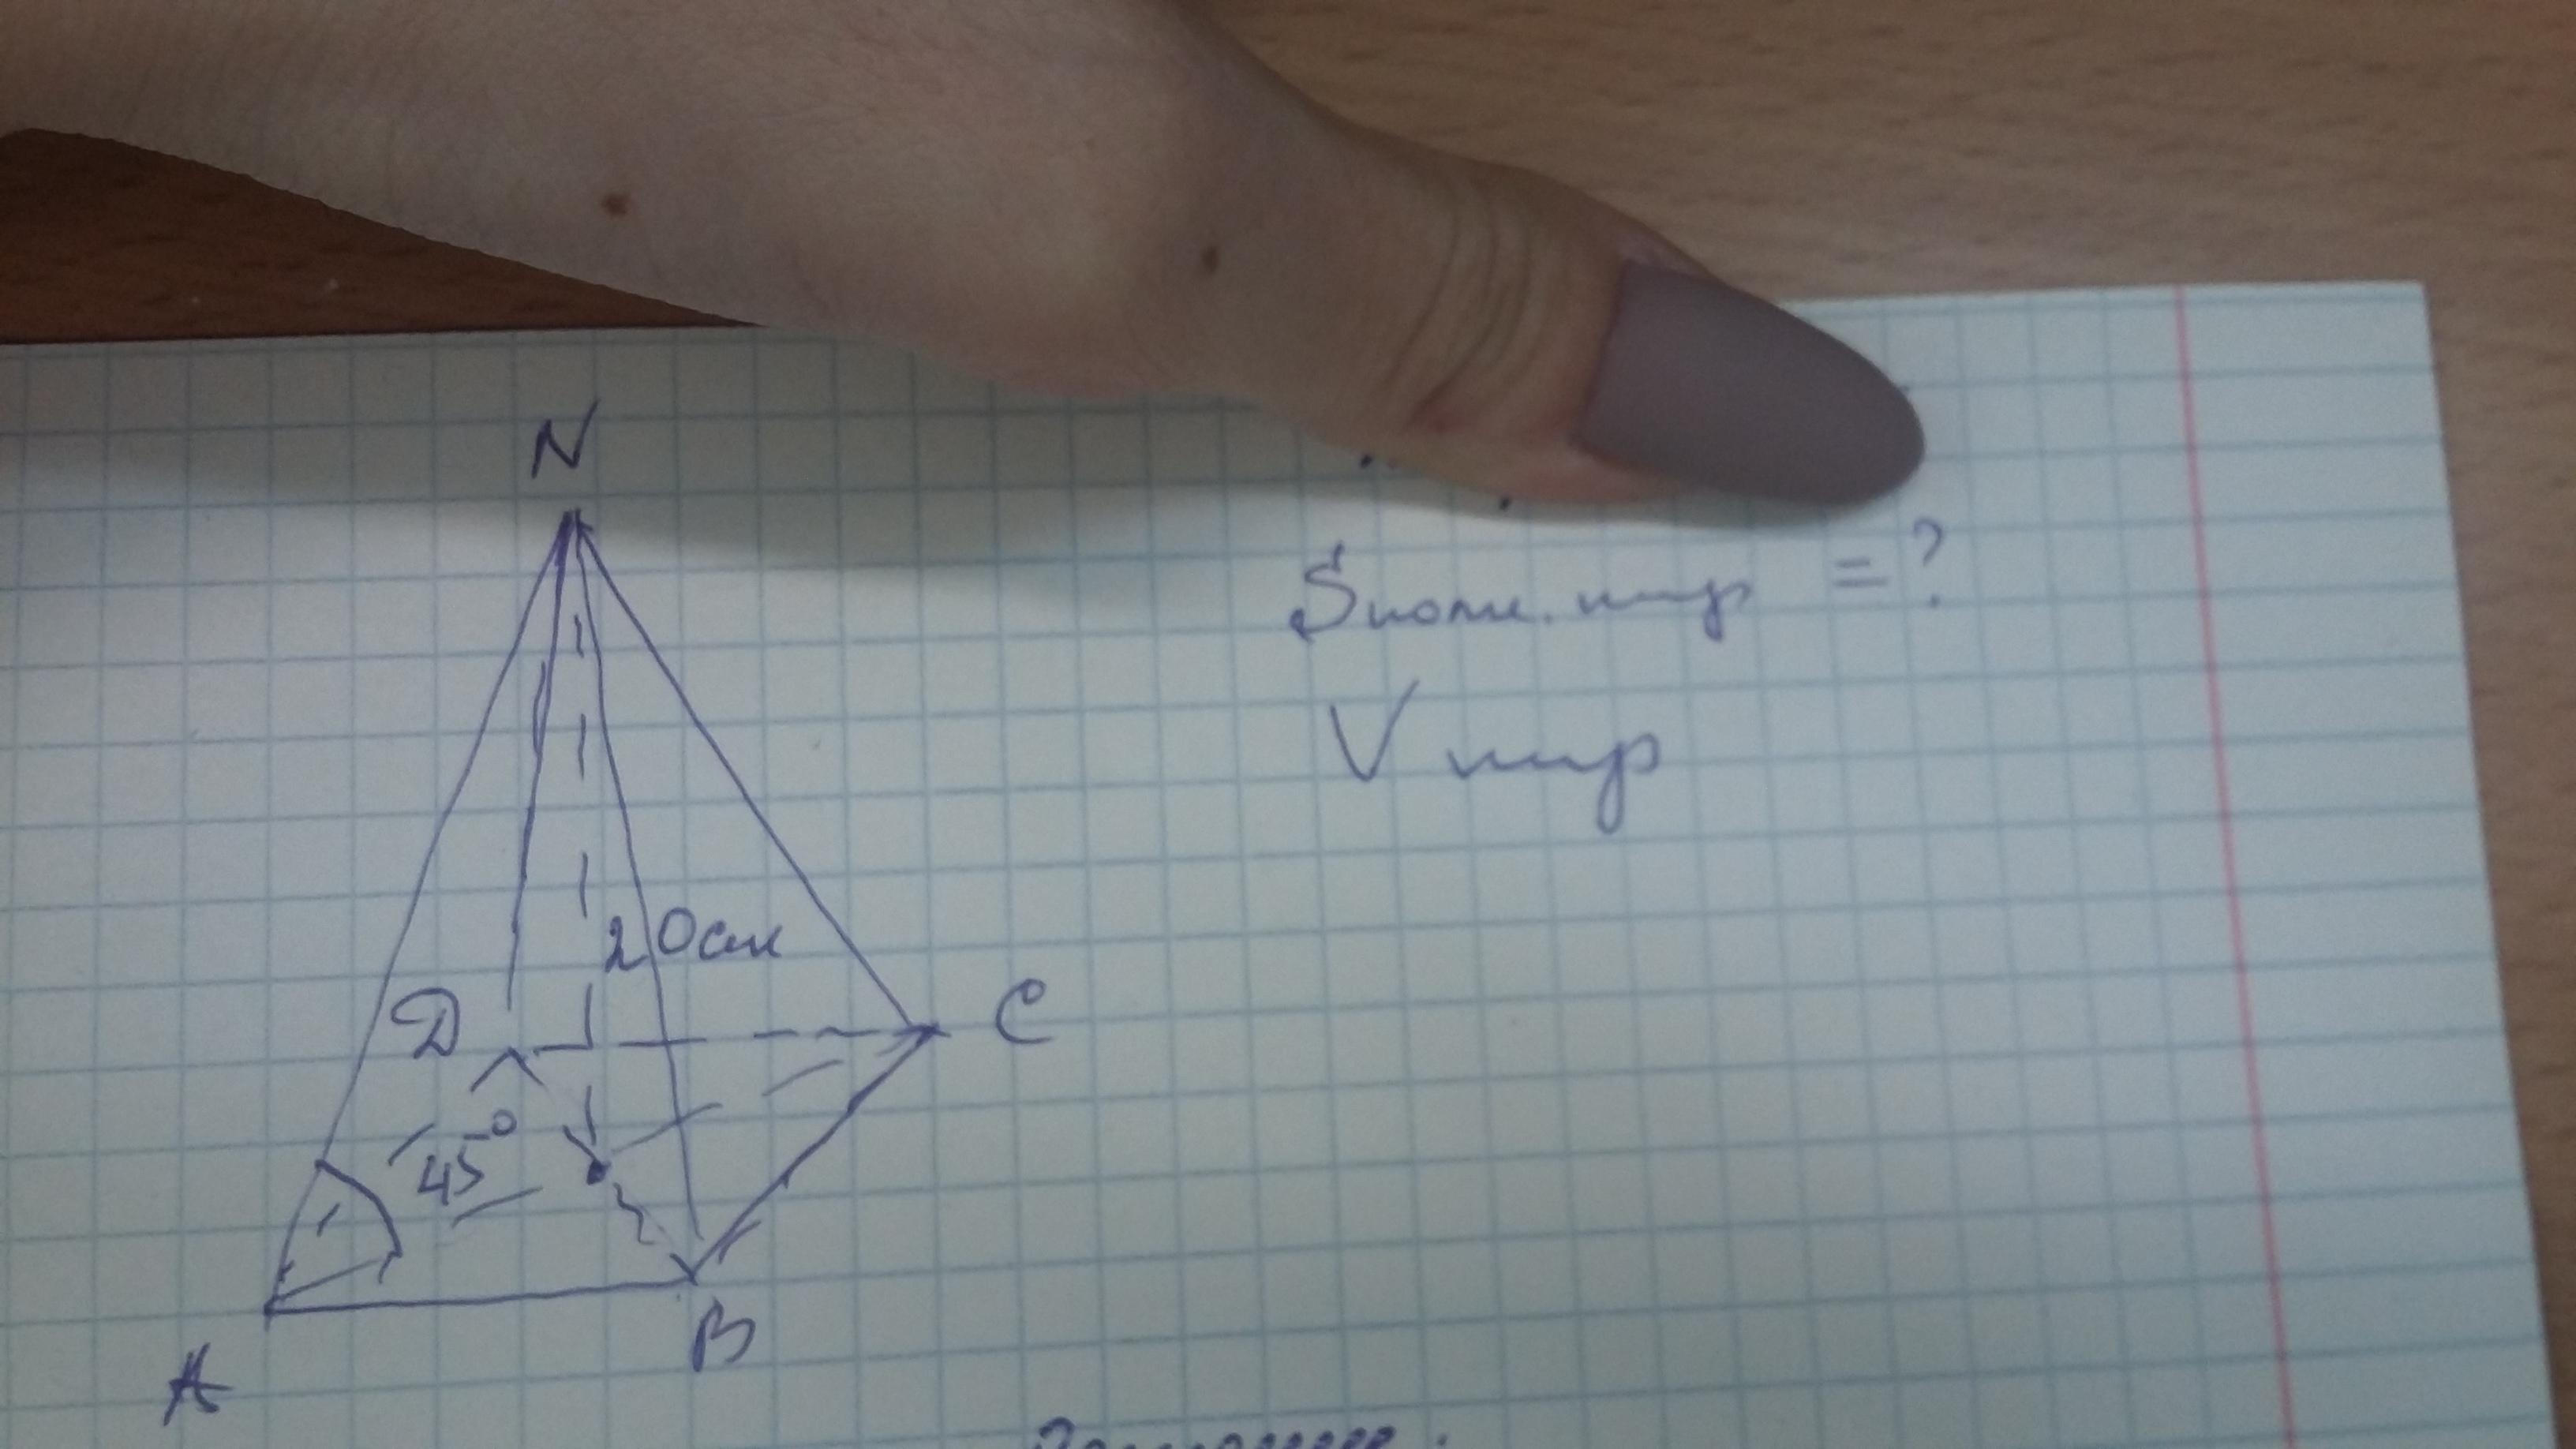 N
Sполн. пир = ?
V пир
20см
D
C
45°
B
A